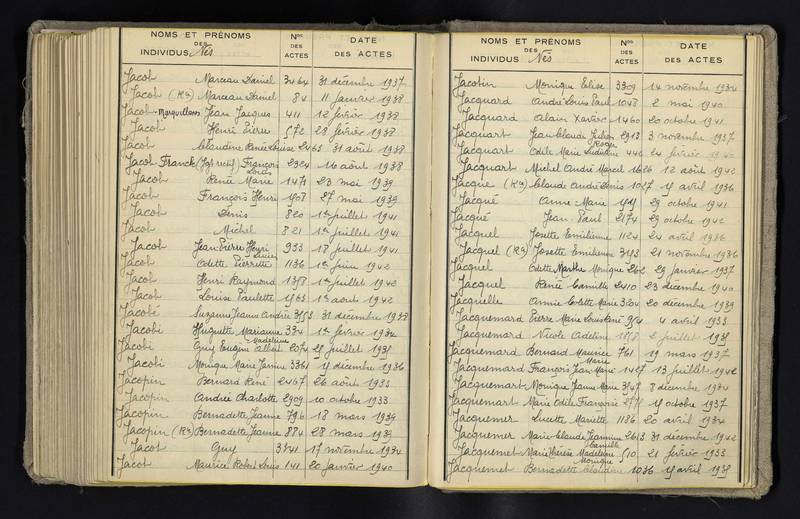 NOMS ET PRÉNOMS DES INDIVIDUS Nés
Nos DES ACTES
DATE DES ACTES
Jacob Marceau Daniel 3464 31 décembre 1937
Jacob (Rn) Marceau Daniel 84 11 janvier 1938
Jacob-Marguillard Jean Jacques 411 12 février 1938
Jacob Henri Pierre 572 28 février 1938
Jacob Claudine Renée Louise 2463 31 août 1938
Jacob Franck (Jgt rectif) François Louis 2324 16 août 1938
Jacob Renée Marie 1471 23 mai 1939
Jacob François Henri 1508 27 mai 1939
Jacob Denis 820 1er juillet 1941
Jacob Michel 821 1er juillet 1941
Jacob Jean Pierre Henri Lucien 933 18 juillet 1941
Jacob Odette Pierrette 1136 1er juin 1942
Jacob Henri Raymond 1358 1er juillet 1942
Jacob Louise Paulette 1563 1er août 1942
Jacobé Suzanne Jeanne Andrée 3553 31 décembre 1938
Jacobi Huguette Marianne Madeleine 334 1er février 1932
Jacobi Guy Eugène Albert 2074 25 juillet 1935
Jacobi Monique Marie Janine 3361 15 décembre 1936
Jacopin Bernard René 2467 26 août 1933
Jacopin Andrée Charlotte 2909 10 octobre 1933
Jacopin Bernadette Jeanne 796 18 mars 1939
Jacopin (Rn) Bernadette Jeanne 884 28 mars 1939
Jacot Guy 3341 17 novembre 1934
Jacot Maurice Robert Louis 141 20 janvier 1940
NOMS ET PRÉNOMS DES INDIVIDUS Nés
Nos DES ACTES
DATE DES ACTES
Jacotin Monique Elise 3309 14 novembre 1934
Jacquard André Louis Paul 1048 2 mai 1940
Jacquard Alain Xavier 1460 20 octobre 1941
Jacquart Jean Claude Julien Roger 2918 3 novembre 1937
Jacquart Odile Marie 446 24 février 1940
Jacquart Michel André Marcel 1626 12 août 1942
Jacque (Rn) Claude André Denis 1047 15 avril 1936
Jacqué Anne Marie 29 octobre 1941
Jacqué Jean Paul 2174 29 octobre 1942
Jacquel Josette Emilienne 1124 24 avril 1936
Jacquel (Rn) Josette Emilienne 21 novembre 1936
Jacquel Odette Marthe Monique 262 29 janvier 1937
Jacquel Renée Camille 2410 23 décembre 1940
Jacquelle Annie Colette Marie 3604 20 décembre 1939
Jacquemard Pierre Marie Louis René 954 4 avril 1933
Jacquemard Nicole Adeline 1858 2 juillet 1935
Jacquemard Bernard Maurice 761 19 mars 1937
Jacquemard François Jean Marie Marie 1457 13 juillet 1942
Jacquemart Monique Jeanne Marie 3547 8 décembre 1934
Jacquemart Marie Odile Françoise 15 octobre 1937
Jacquemer Lucette Mariette 1186 20 avril 1934
Jacquemer Marie Claude Jeannine Camille 2613 31 décembre 1942
Jacquemet Marie Thérèse Madeleine Monique 510 21 février 1933
Jacquemet Bernadette Claudine 1036 15 avril 1935